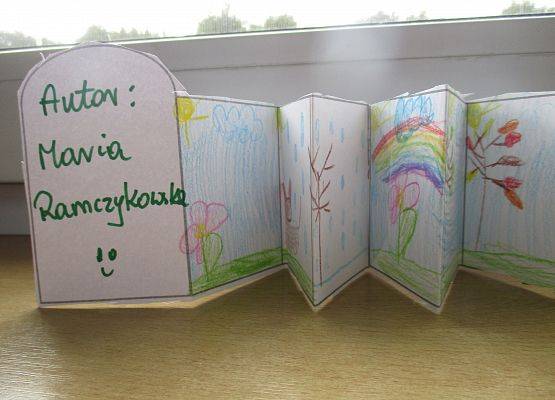 Autor:
Maria
Ramczykowska